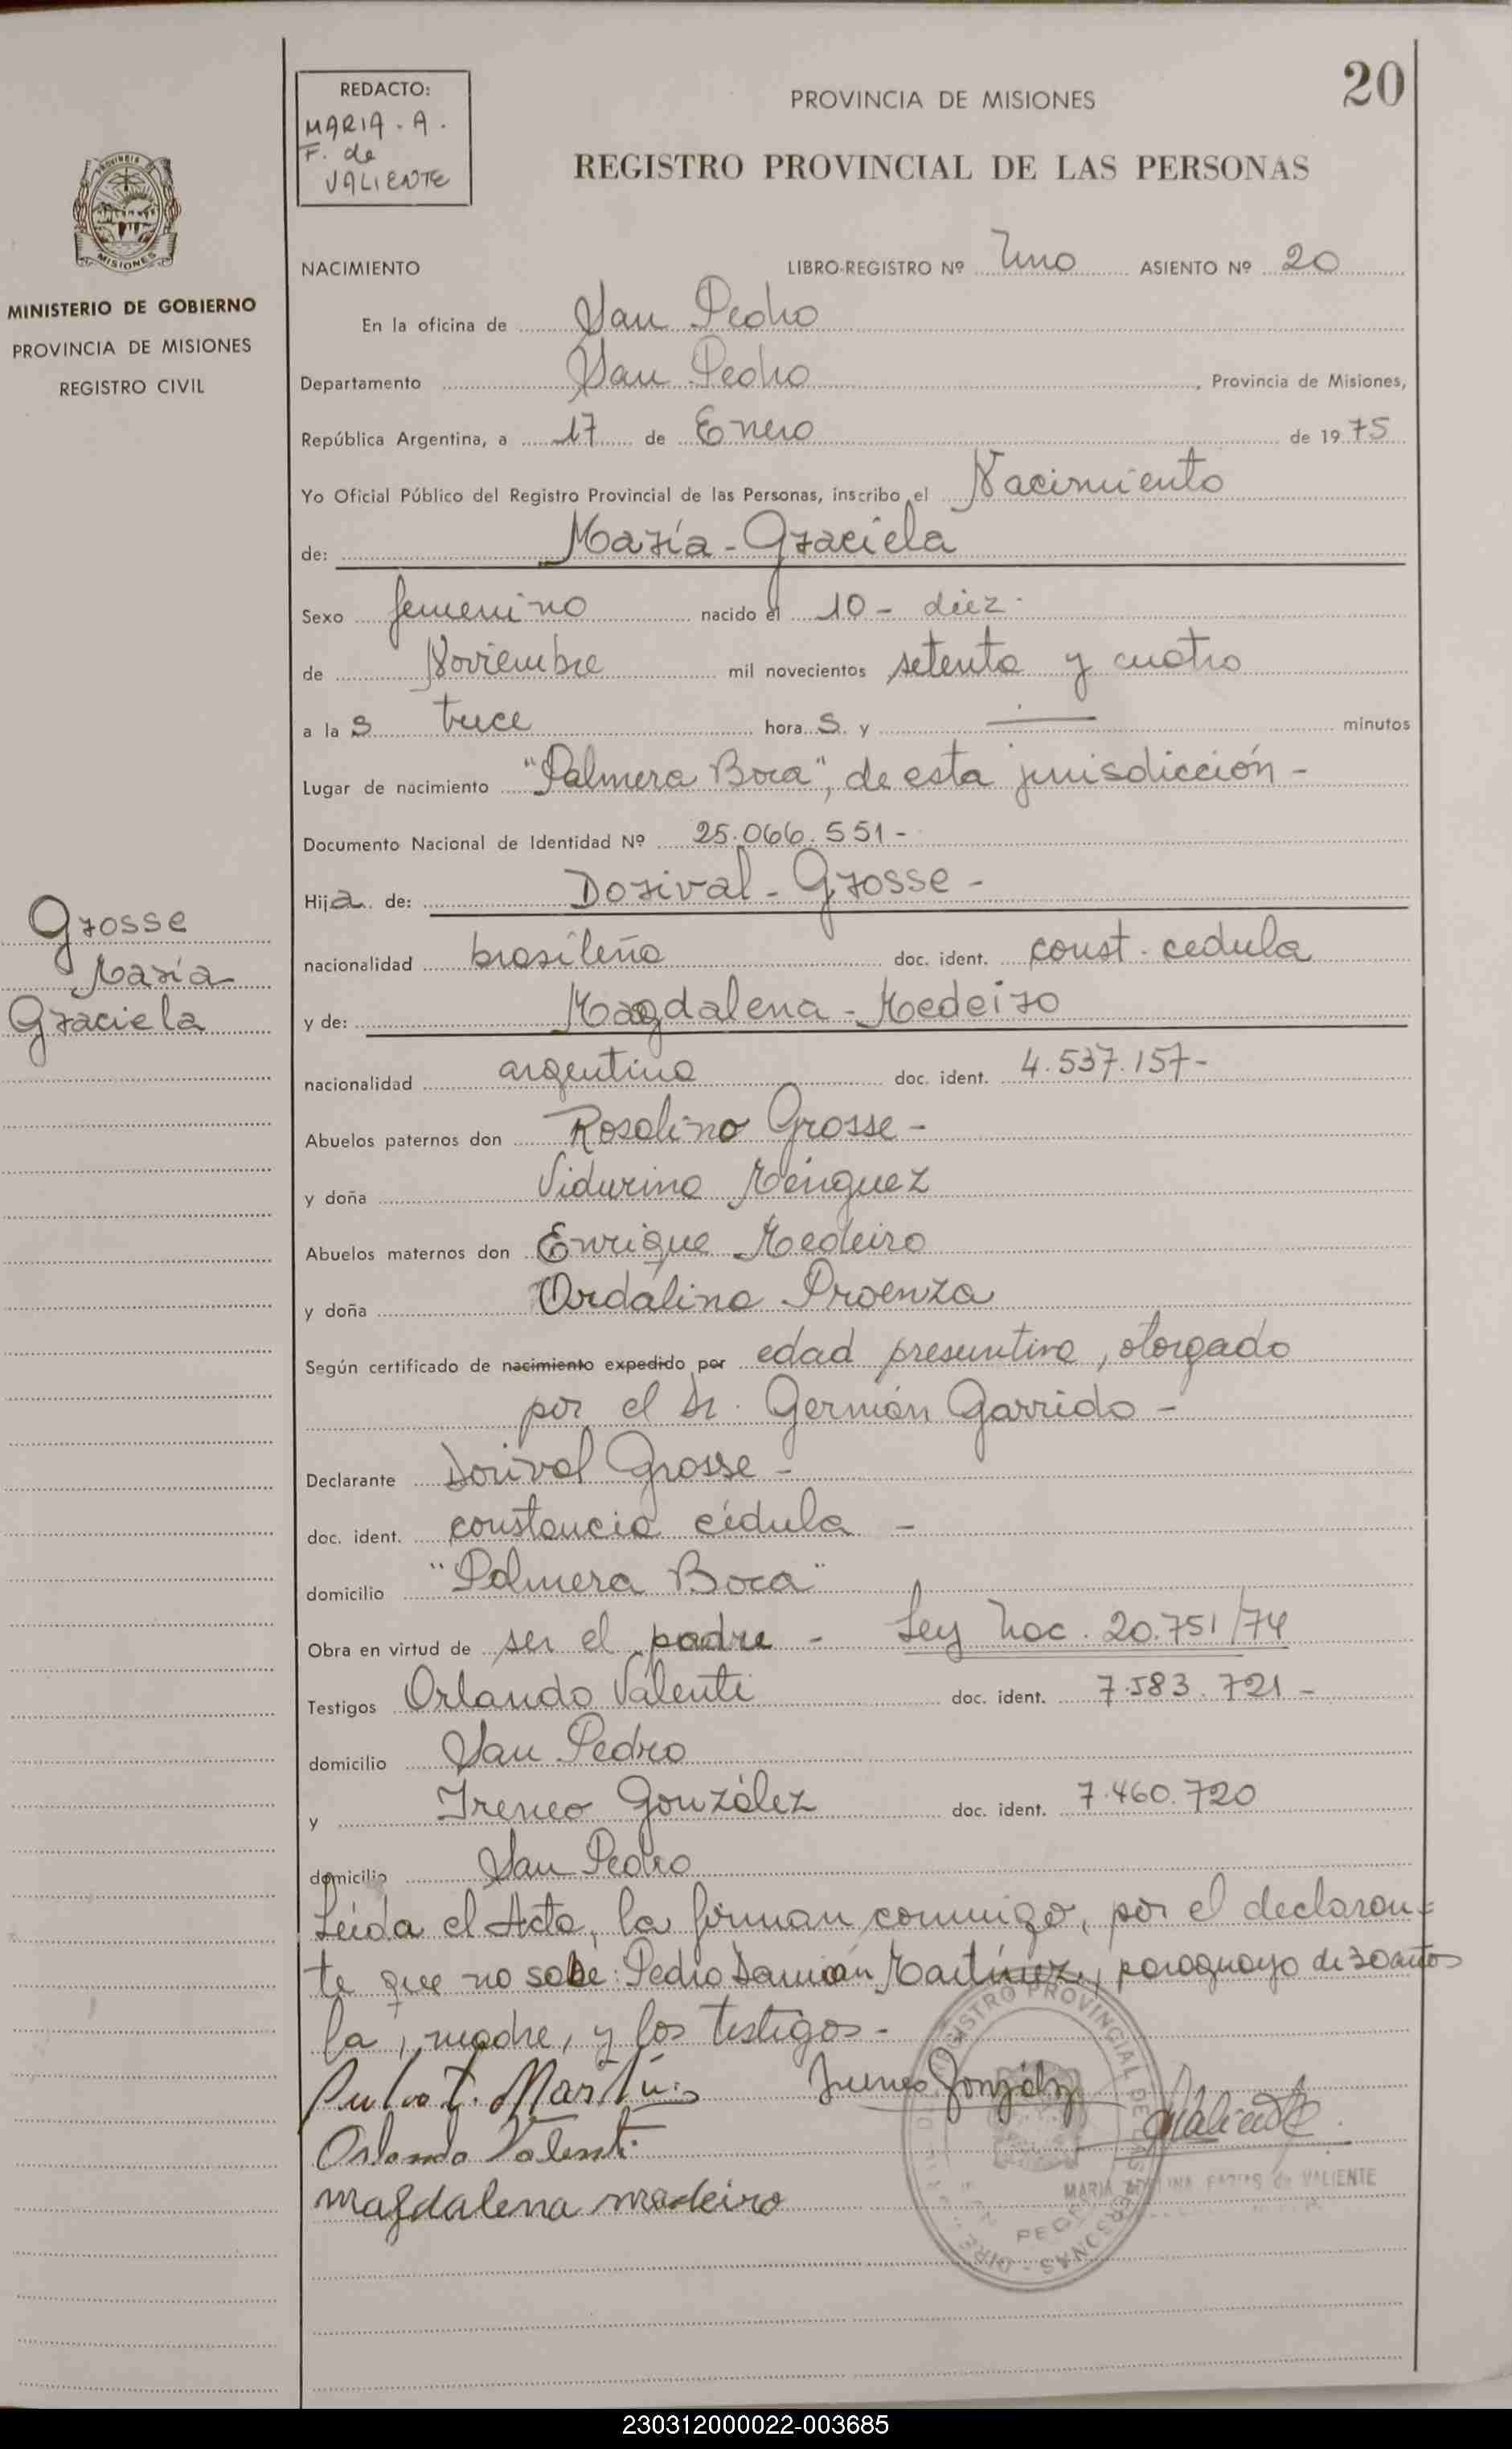 20
REDACTO:
MARIA - A.
F. de
VALIENTE
PROVINCIA DE MISIONES
REGISTRO PROVINCIAL DE LAS PERSONAS
MISIONES
MINISTERIO DE GOBIERNO
PROVINCIA DE MISIONES
REGISTRO CIVIL
NACIMIENTO LIBRO-REGISTRO Nº Uno ASIENTO Nº 20
En la oficina de San Pedro
Departamento San Pedro, Provincia de Misiones,
República Argentina, a 17 de Enero de 1975
Yo Oficial Público del Registro Provincial de las Personas, inscribo el Nacimiento
de: María - Graciela
Sexo femenino nacido el 10 - diez -
de Noviembre mil novecientos setenta y cuatro
a las trece horas y — minutos
Lugar de nacimiento "Palmera Boca", de esta jurisdicción -
Documento Nacional de Identidad Nº 25.066.551 -
Hija de: Dorival - Grosse -
nacionalidad brasileño doc. ident. const. cedula
y de: Magdalena - Medeiro
nacionalidad argentina doc. ident. 4.537.157 -
Grosse
María
Graciela
Abuelos paternos don Rosalino Grosse -
y doña Vidurina Menguez
Abuelos maternos don Enrique Medeiro
y doña Ordalina Proenza
Según certificado de nacimiento expedido por edad presuntiva, otorgado
por el Dr. Germán Garrido -
Declarante Dorival Grosse -
doc. ident. constancia cédula -
domicilio "Palmera Boca"
Obra en virtud de ser el padre - Ley Nac. 20.751/74
Testigos Orlando Valenti doc. ident. 7.583.721 -
domicilio San Pedro
y Ireneo González doc. ident. 7.460.720
domicilio San Pedro
Leída el Acta, la firman conmigo, por el declaran=
te que no sabe: Pedro Damián Martínez, paraguayo de 30 años
la, madre, y los testigos -
Ireneo González
Valiente
Orlando Valenti
MARIA VALIENTE
magdalena medeiro
REGISTRO PROVINCIAL DE LAS PERSONAS
230312000022-003685